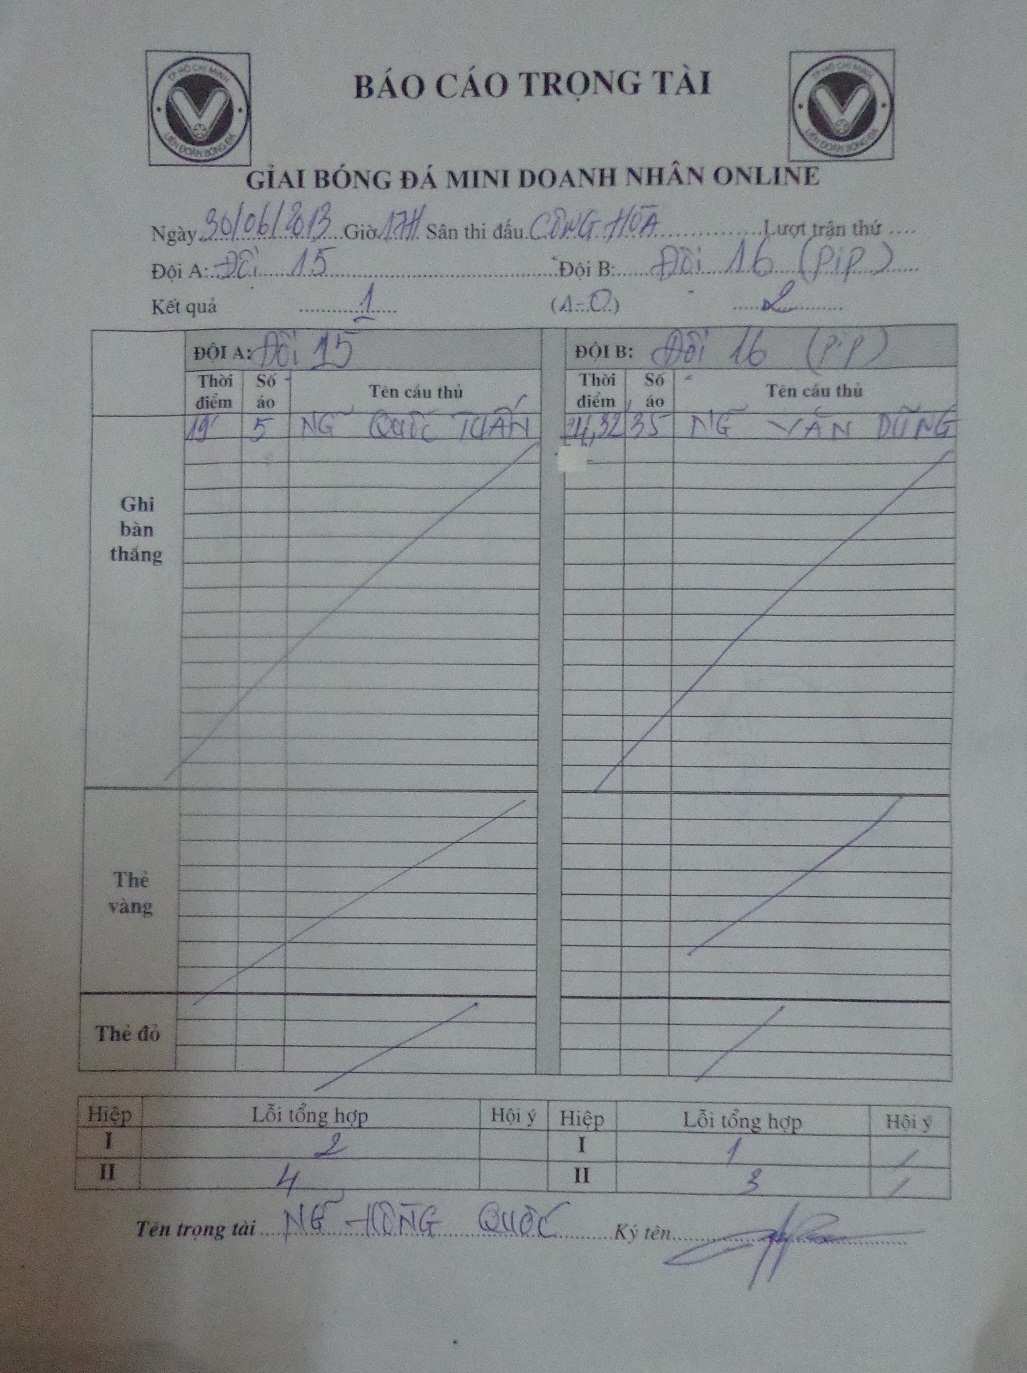 TP HỒ CHÍ MINH
LIÊN ĐOÀN BÓNG ĐÁ
BÁO CÁO TRỌNG TÀI
TP HỒ CHÍ MINH
LIÊN ĐOÀN BÓNG ĐÁ
GIẢI BÓNG ĐÁ MINI DOANH NHÂN ONLINE
Ngày 30/06/2013 Giờ 17H Sân thi đấu CỘNG HÒA Lượt trận thứ ....
Đội A: Đội 15 Đội B: Đội 16 (PiP)
Kết quả 1 (1-0) 2
ĐỘI A: Đội 15 ĐỘI B: Đội 16 (PiP)
Thời điểm Số áo Tên cầu thủ Thời điểm Số áo Tên cầu thủ
19' 5 NG~ QUỐC TUẤN 32 35 NG~ VĂN DŨNG
Ghi
bàn
thắng
Thẻ
vàng
Thẻ đỏ
Hiệp Lỗi tổng hợp Hội ý Hiệp Lỗi tổng hợp Hội ý
I 2 I 1 /
II 4 II 3 /
Tên trọng tài NG~ HỒNG QUỐC Ký tên